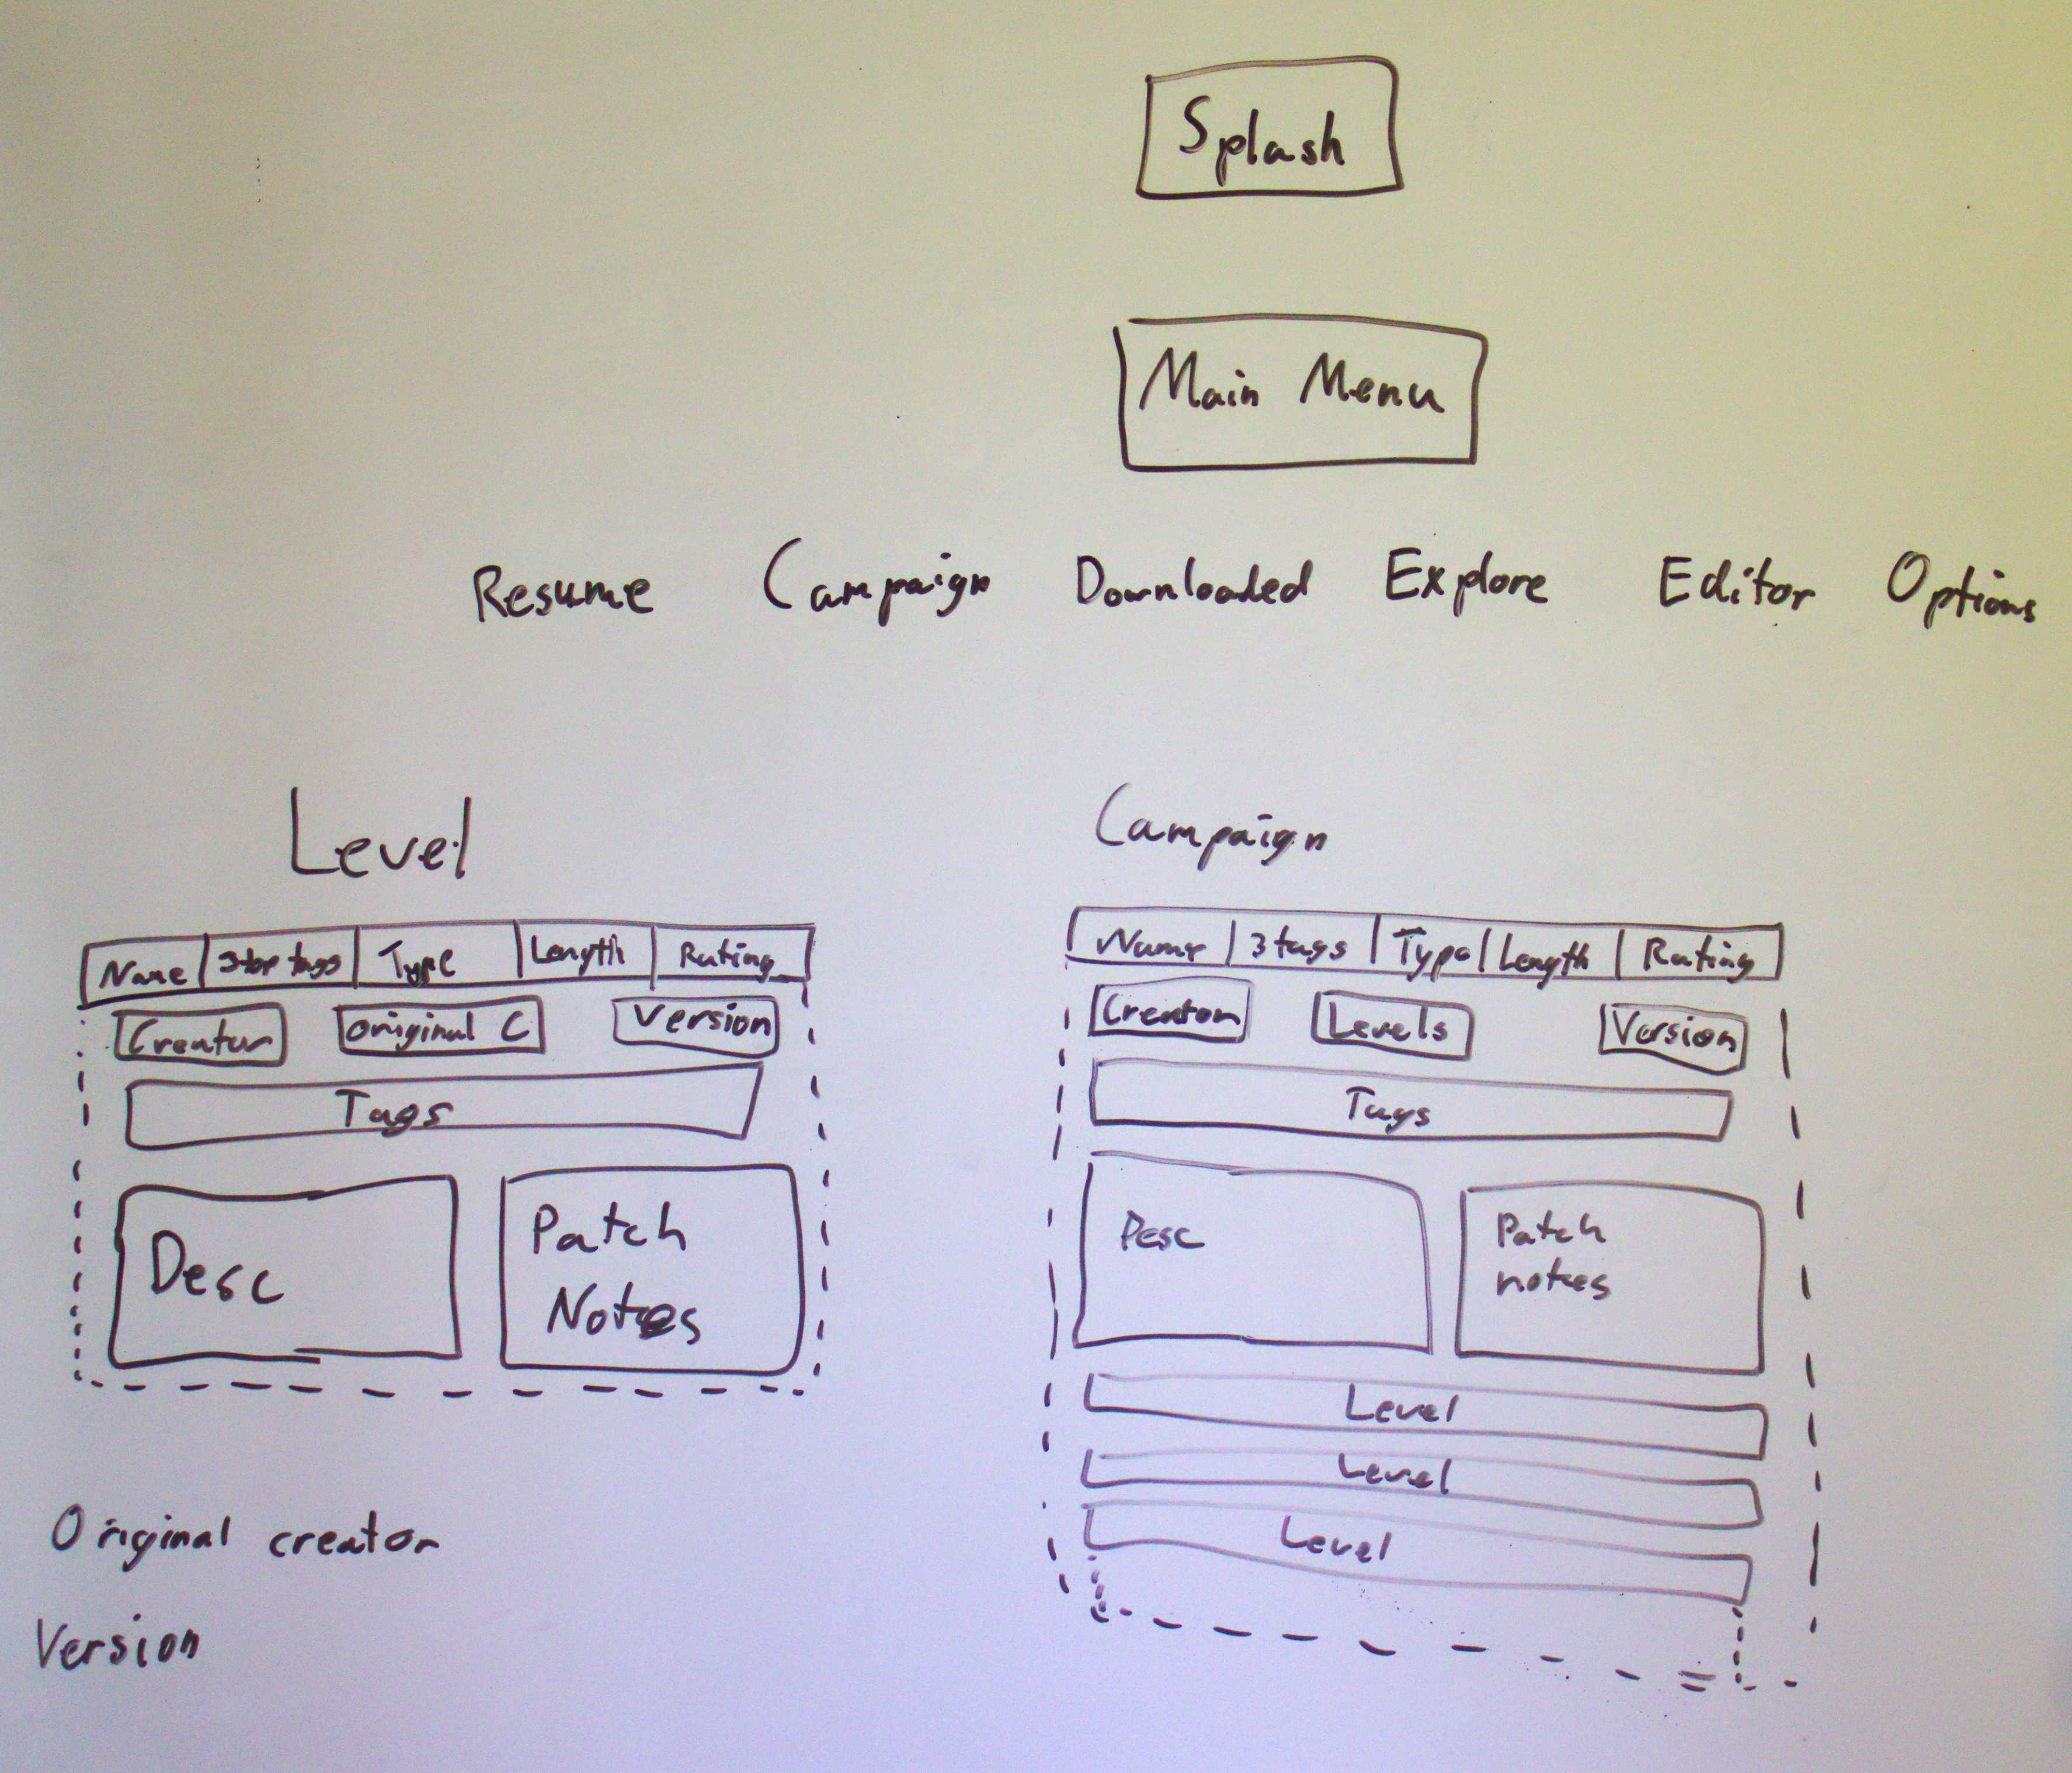 Splash
Main Menu
Resume Campaign Downloaded Explore Editor Options
Level
Name 3 top tags Type Length Rating
Creator Original C Version
Tags
Desc
Patch
Notes
Original creator
Version
Campaign
Name 3 tags Type Length Rating
Creator Levels Version
Tags
Desc
Patch
notes
Level
Level
Level